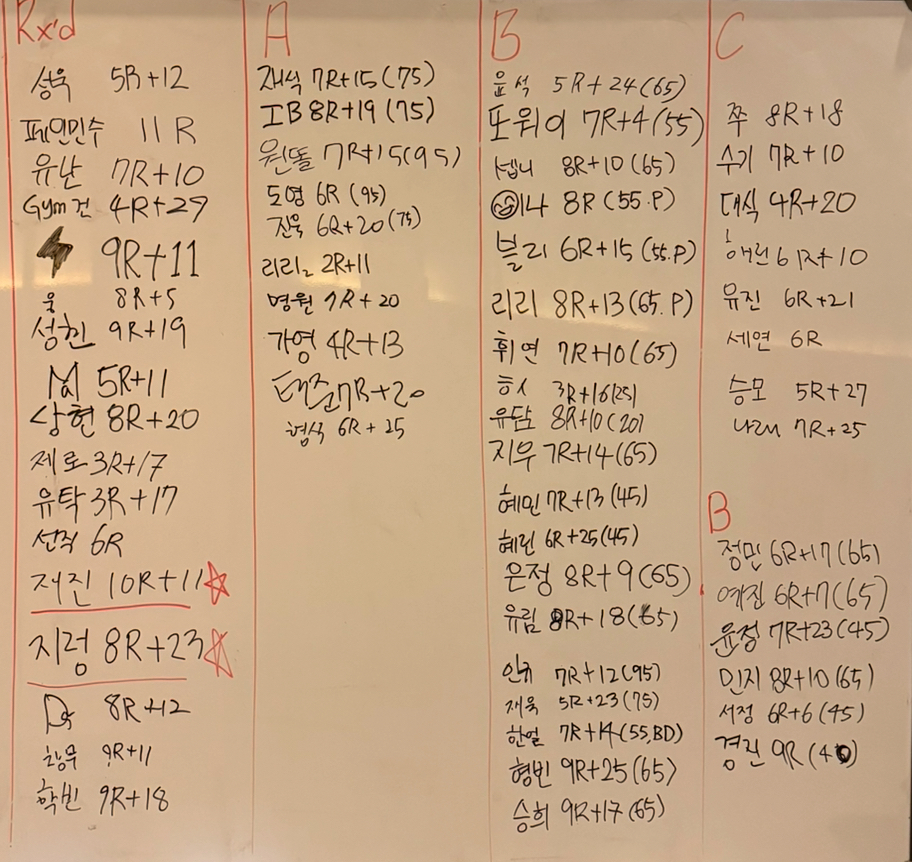 Rx'd
성욱 5R+12
페인민수 11R
유난 7R+10
Gym건 4R+27
9R+11
웅 8R+5
성헌 9R+19
M 5R+11
상현 8R+20
제로 3R+17
유탁 3R+17
선적 6R
재진 10R+11
지령 8R+23
8R+12
창무 9R+11
학빈 9R+18
A
재식 7R+15(75)
IB 8R+19(75)
원똘 7R+15(95)
도영 6R(95)
진욱 6R+20(75)
리리2 2R+11
명월 7R+20
가영 4R+13
태주 7R+20
형식 6R+25
B
윤석 5R+24(65)
또위이 7R+4(55)
셉니 8R+10(65)
이나 8R(55.P)
블리 6R+15(55.P)
리리 8R+13(65.P)
휘연 7R+10(65)
3R+16(25)
유담 8R+10(20)
지우 7R+14(65)
혜민 7R+13(45)
혜린 6R+25(45)
은정 8R+9(65)
유림 8R+18(65)
인규 7R+12(95)
재욱 5R+23(75)
한얼 7R+14(55,BD)
형빈 9R+25(65)
승희 9R+17(65)
C
쭈 8R+18
수기 7R+10
대식 4R+20
해런 6R+10
유진 6R+21
세연 6R
승모 5R+27
나래 7R+25
B
정민 6R+17(65)
예진 6R+7(65)
윤정 7R+23(45)
민지 8R+10(65)
서정 6R+6(45)
경진 9R(40)